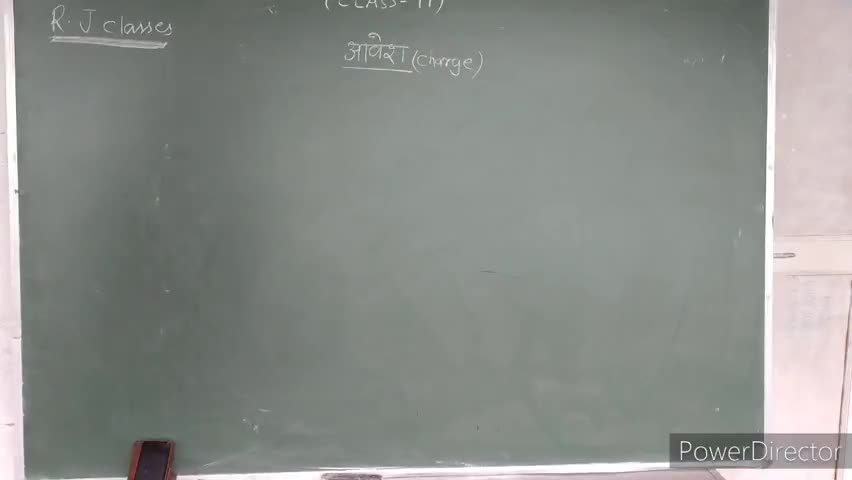 (CLASS-11)
R. J classes
आवेश (charge)
PowerDirector